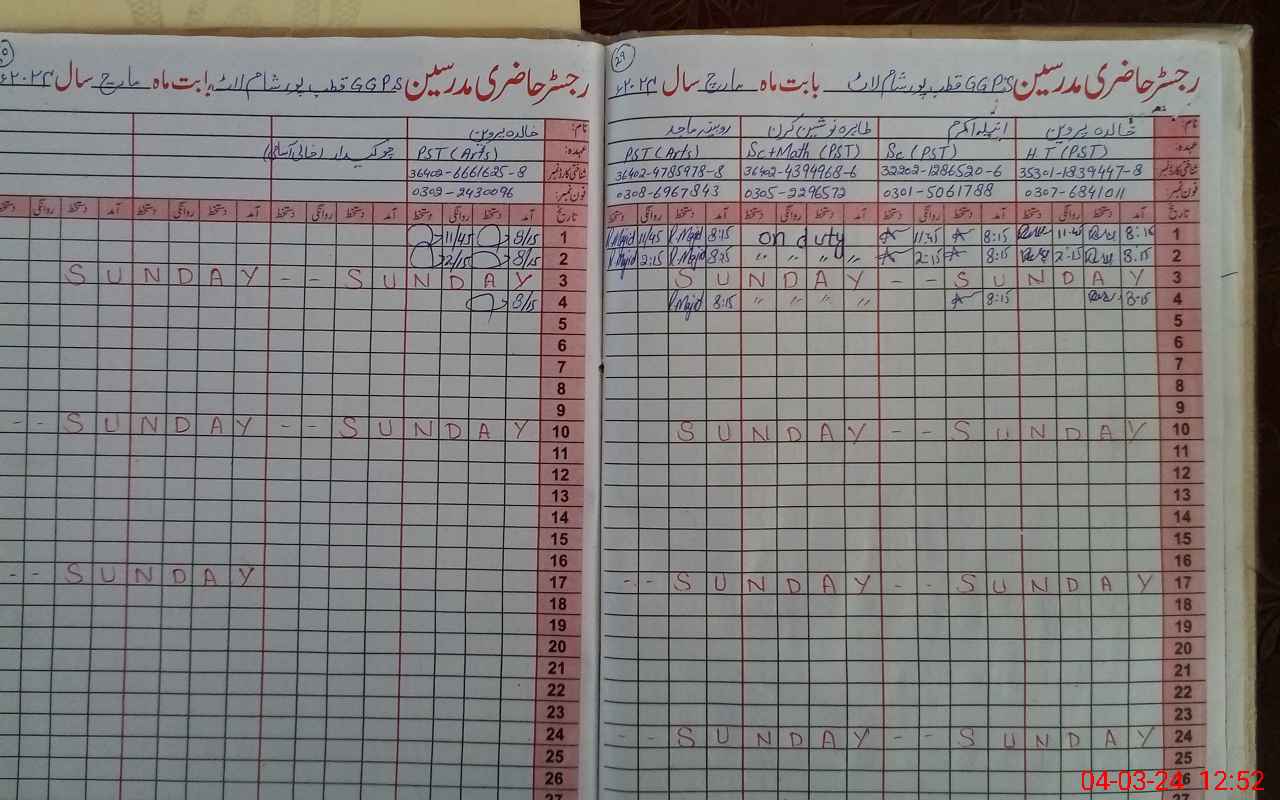 29
رجسٹر حاضری مدرسین GGPS قطب پور شام لاٹ بابت ماہ مارچ سال ۲۰۲۴ء
نام: خالدہ پروین انیلہ اکرم طاہرہ نوشین کرن روبینہ ماجد
عہدہ: H.T (PST) Sc (PST) Sc+Math (PST) PST (Arts)
شناختی کارڈ نمبر 35301-1839447-8 32202-1286520-6 36402-4394968-6 36402-9785978-8
فون نمبر: 0307-6841011 0301-5061788 0305-2296572 0308-6967843
تاریخ آمد دستخط روانگی دستخط آمد دستخط روانگی دستخط آمد دستخط روانگی دستخط آمد دستخط روانگی دستخط
1 8:15 11:45 8:15 11:45 on duty 8:15 R Majid 11/45 R Majid
2 8:15 2:15 8:15 2:15 " " " " 8:15 R Majid 2:15 R Majid
3 SUNDAY - - SUNDAY
4 8:15 8:15 " " " " 8:15 R Majid
5
6
7
8
9
10 SUNDAY - - SUNDAY
11
12
13
14
15
16
17 SUNDAY - - SUNDAY - -
18
19
20
21
22
23
24 SUNDAY - - SUNDAY - -
25
26
27
رجسٹر حاضری مدرسین GGPS قطب پور شام لاٹ بابت ماہ مارچ سال ۲۰۲۴ء
نام: خالدہ پروین
عہدہ: PST (Arts) چوکیدار (خالی آسامی)
شناختی کارڈ نمبر 36402-6661625-8
فون نمبر: 0302-2430096
تاریخ آمد دستخط روانگی دستخط آمد دستخط روانگی دستخط آمد دستخط روانگی دستخط آمد دستخط روانگی دستخط
1 8/15 11/45
2 8/15 2/15
3 SUNDAY - - SUNDAY
4 8/15
5
6
7
8
9
10 SUNDAY - - SUNDAY - -
11
12
13
14
15
16
17 SUNDAY - -
18
19
20
21
22
23
24
25
26
27
04-03-24 12:52